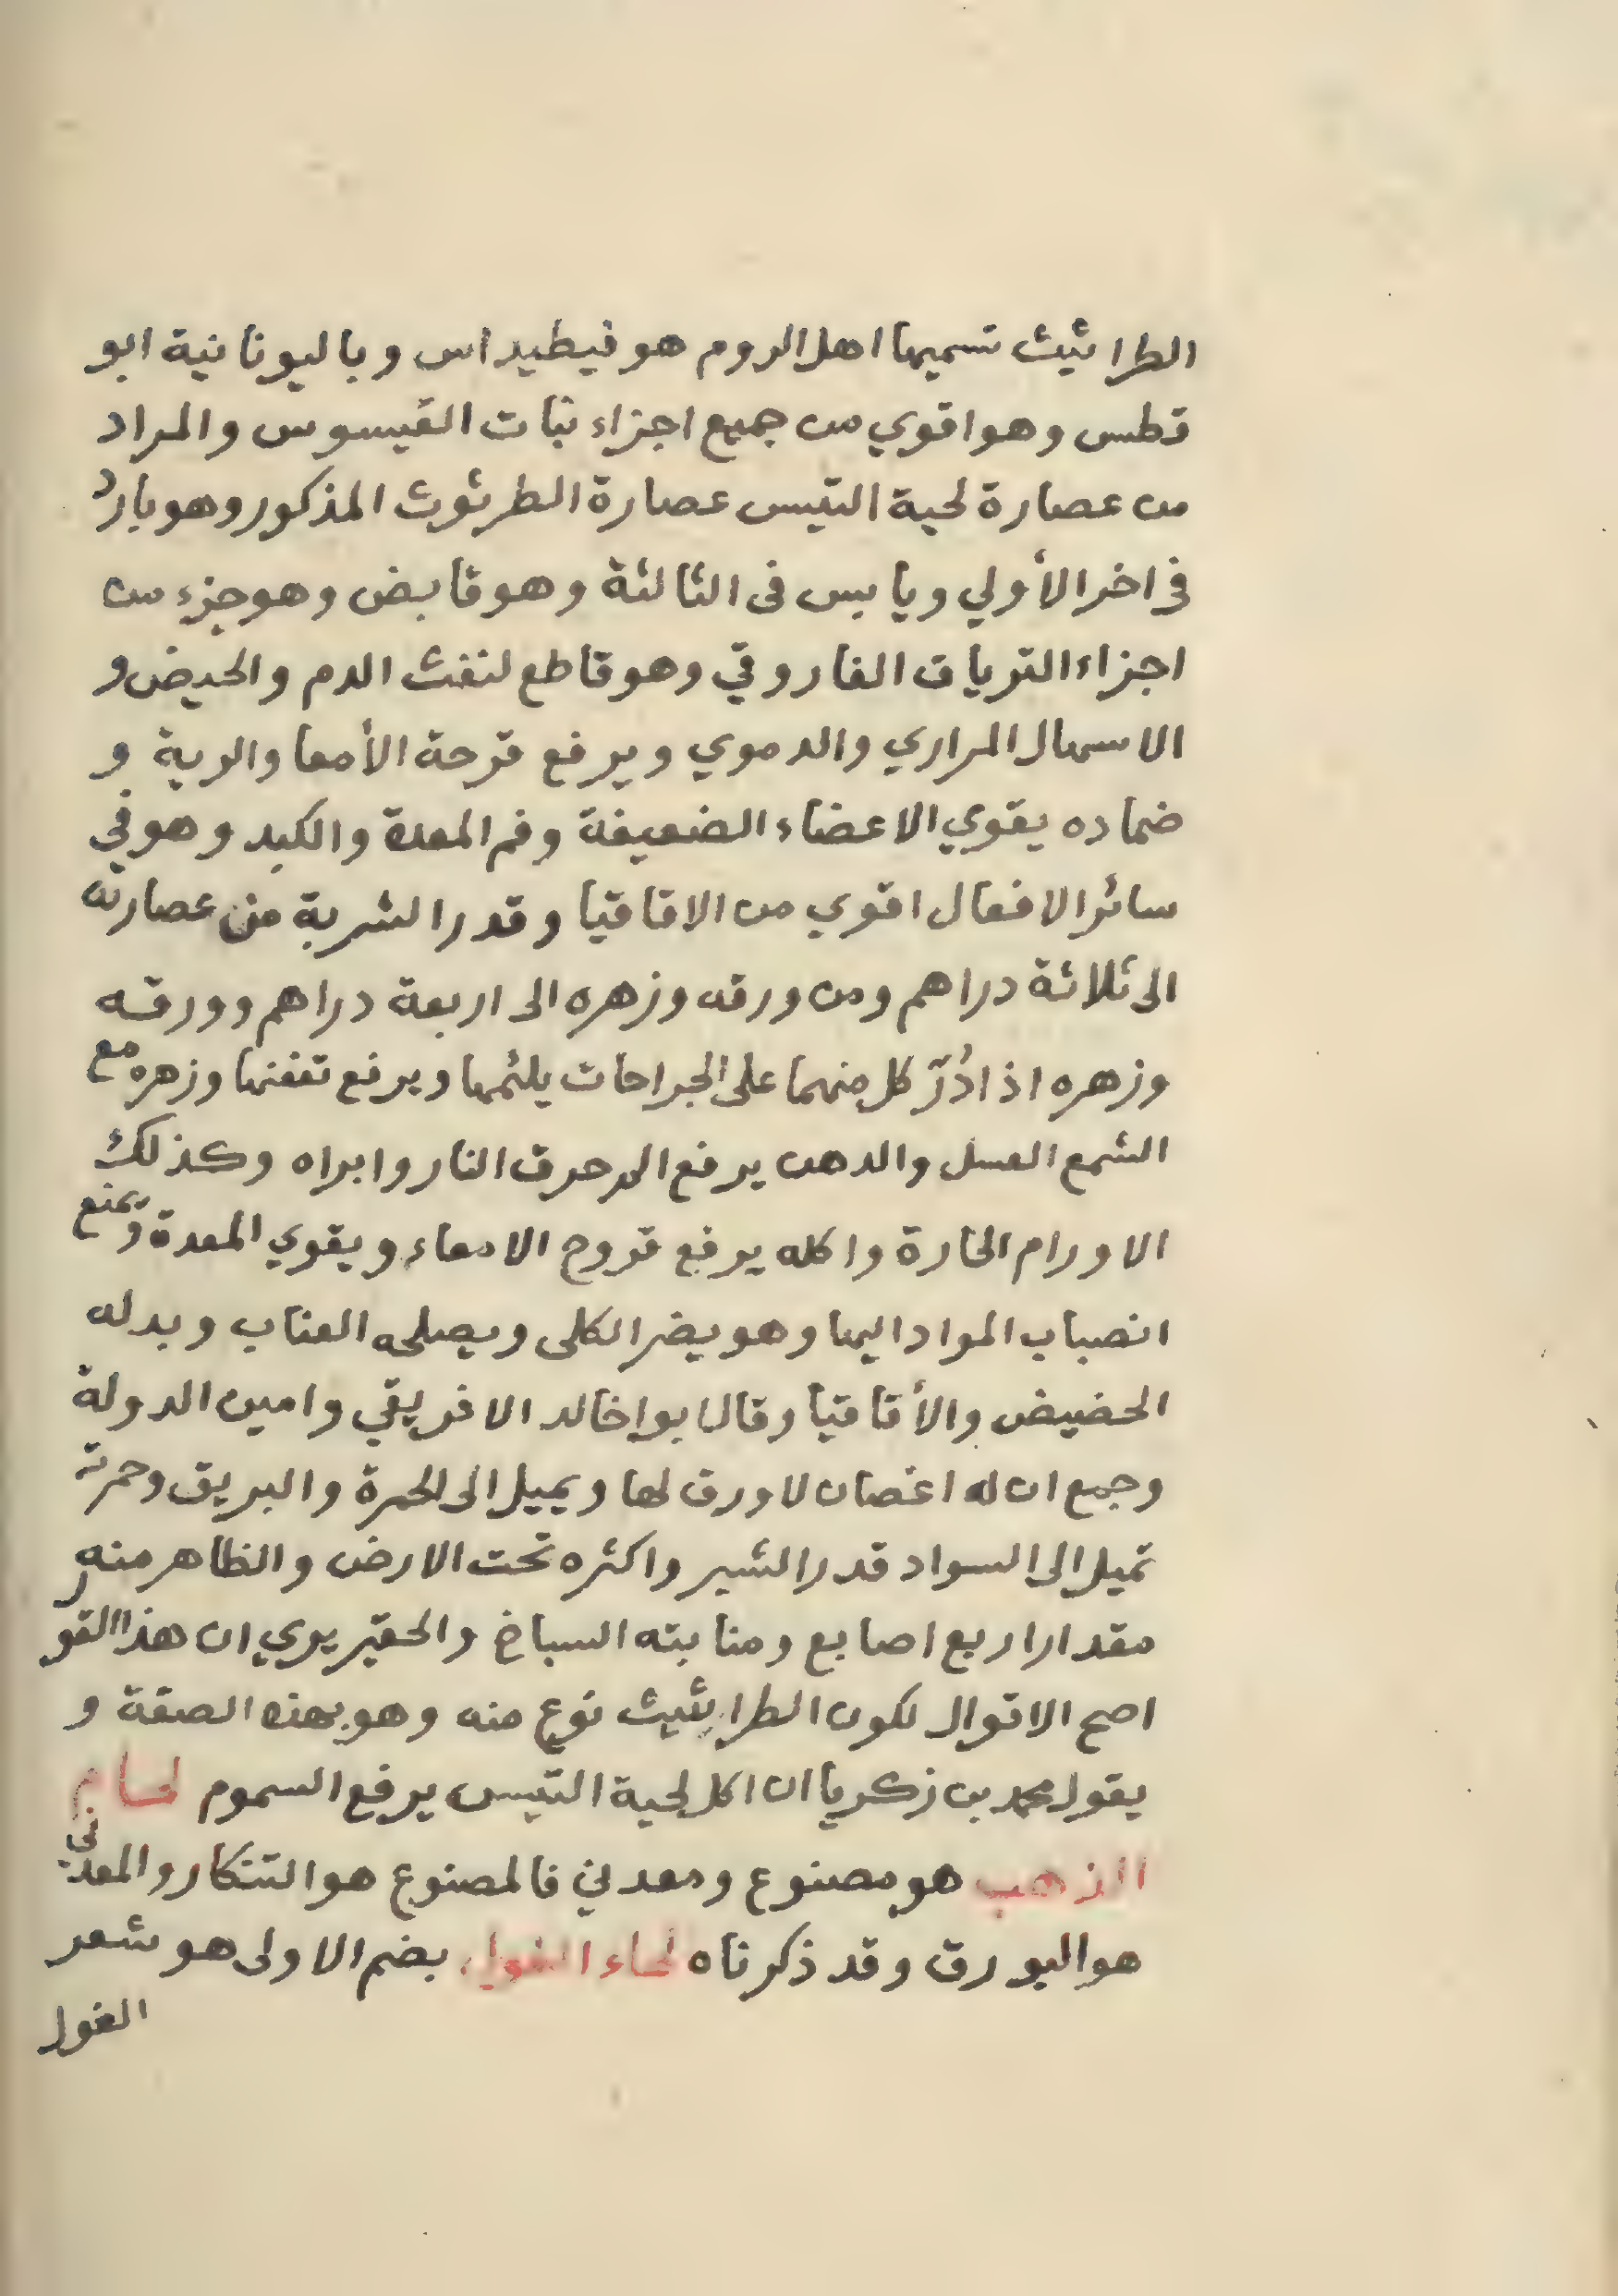 الطراثيث تسميها اهل الروم هوفيطيداس وباليونانية ابو
قطس وهو اقوي من جميع اجزاء نبات القيسوس والمراد
من عصارة لحية التيس عصارة الطرثوث المذكور وهو بارد
في اخر الأولي ويابس فى الثالثة وهو قابض وهو جزء من
اجزاء الترياق الفاروقي وهو قاطع لنفث الدم والحيض و
الاسهال المراري والدموي ويرفع قرحة الأمعا والرية و
ضماده يقوي الاعضاء الضعيفة وفم المعدة والكبد وهو في
سائر الافعال اقوي من الاقاقيا وقدر الشربة من عصارته
الى ثلاثة دراهم ومن ورقه وزهره الى اربعة دراهم وورقه
وزهره اذا ذُرّ كل منهما على الجراحات يلئمها ويرفع تعفنها وزهره مع
الشمع العسل والدهن يرفع حرق النار وابراه وكذلك
الاورام الحارة واكله يرفع قروح الامعاء ويقوي المعدة ويمنع
انصباب المواد اليها وهو يضر الكلى ويصلحه العناب وبدله
الحضيض والأقاقيا وقال ابواخالد الافريقي وامين الدولة
وجمع ان له اغصان لا ورق لها ويميل الى الحمرة والبريق وحمرته
تميل الى السواد قدر الشبر واكثره تحت الارض والظاهر منه
مقدار اربع اصابع ومنابته السباخ والحقير يري ان هذا القول
اصح الاقوال لكون الطراثيث نوع منه وهو بهذه الصفة و
يقول محمد بن زكريا ان اكل لحية التيس يرفع السموم لحام
الذهب هو مصنوع ومعدني فالمصنوع هو التنكار والمعدني
هو البورق وقد ذكرناه لحاء الغول بضم الاولى هو شعر
الغول